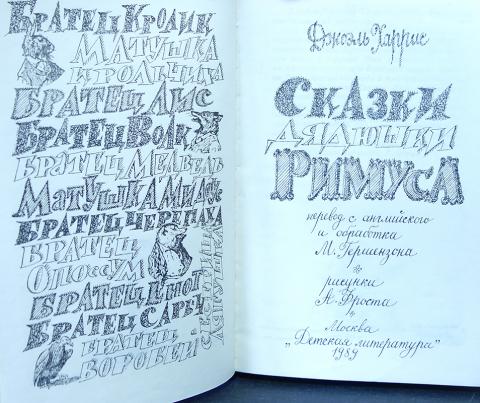 Братец Кролик
Матушка
Крольчиха
Братец Лис
Братец Волк
Братец Медведь
Матушка Мидоус
Братец Черепаха
Братец
Опоссум
Братец Енот
Братец Сарыч
Братец
Воробей
Джоэль Харрис
Сказки
дядюшки
Римуса
перевод с английского
и обработка
М. Гершензона
рисунки
А. Фроста
Москва
„Детская литература"
1989